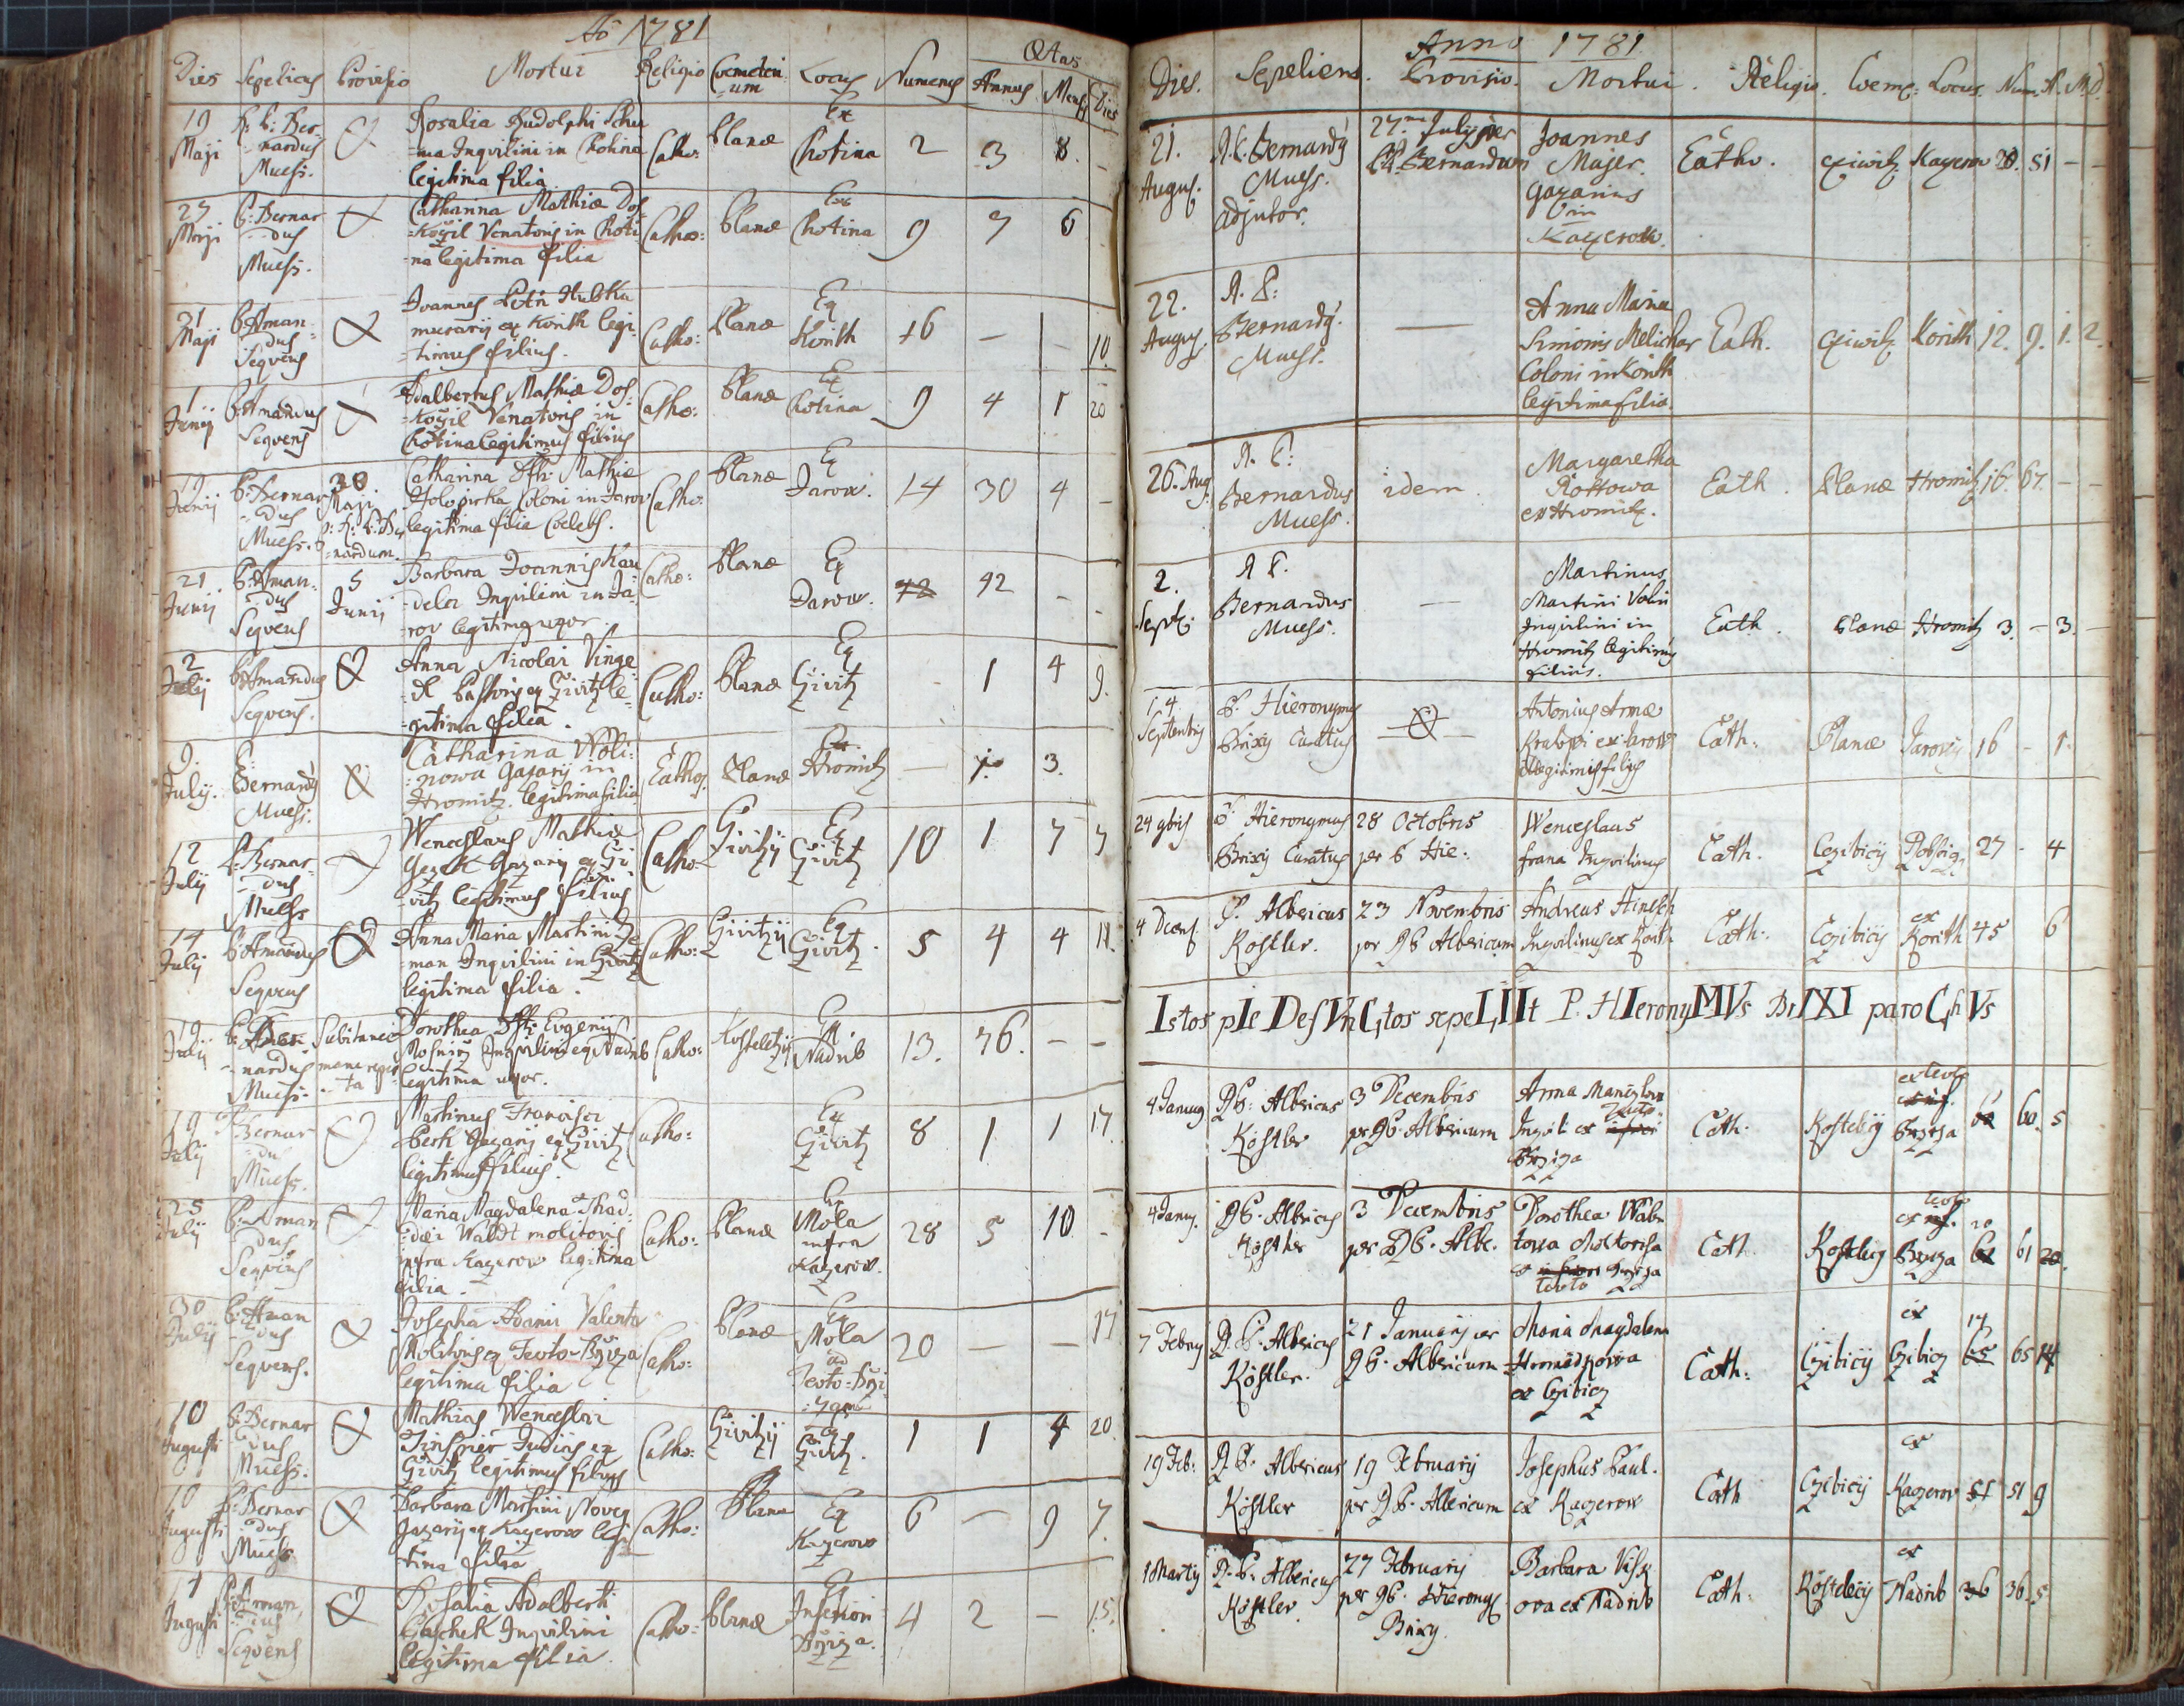 Aõ 1781
Dies Sepeliens Provisio Mortui Religio Coemeteri=um Locus Numerus Ætas Annus Mens Dies
19 Maji
P: Bernardus Muess.
Rosalia Rudolphi
Inquilini in Chotina
legitima filia
Catho: Planæ Ex Chotina 2 3 8. -
27 Maji
P: Bernardus Muess.
Catharina Mathiæ Dos
=koczil Venatoris in Choti
=na legitima filia
Catho: Planæ Ex Chotina 9 7 6
Maji
P: Amandus Seqvens
Joannes Petri Hubka
murarij ex Korith legi
=timus filius.
Catho: Planæ Ex Korith 16 - - 10.
1 Junij
P: Amandus Seqvens
Adalbertus Mathiæ Dos
=koczil Venatoris in
Chotina legitimus filius
Catho: Planæ Ex Chotina 9 4 1 20
Junij
P: Bernardus Muess.
30 Maji p: R: P: Bernardum.
Catharina Dfti Mathiæ
Holopirka Coloni in Jarow
legitima filia Coelebs.
Catho: Planæ Ex Jarow. 14 30 4 -
21 Junij
P: Amandus Seqvens
5 Junij
Barbara Joannis Kau
=deler Inquilini in Ja
=rov legitima uxor.
Catho: Planæ Ex Jarow. 42 - -
2 Julij
P: Amandus Seqvens.
Anna Nicolai Vinge
Pastoris ex Givitz le
=gitima filia.
Catho: Planæ Ex Givitz - 1 4 9.
9. July.
P. Bernardy Muess:
Catharina Woli
=nowa Gazarij in
Hromitz. legitima filia
Cathos. Planæ Ex Hromitz - 3.
12 Julij
P: Bernardus Muess
Wenceslaus Mathiæ
Gezek Gazarij ex Gi
=vitz legitimus filius
Catho: Givitzij Ex Givitz 10 1 7 7
14 Julij
P: Amandus Seqvens
Anna Maria Martini Ze
=man Inquilini in Givitz
legitima filia.
Catho: Givitzij Ex Givitz. 5 4 4 11.
19 Julij
P: Bernardus Muess.
Subitanea morte repen=ta
Dorothea Dfti Evgenij
Inquilini ex Nadrib
legitima uxor.
Catho: Kosteletzij Ex Nadrib 13. 76. - -
19 Julij
P: Bernardus Muess.
Martinus Francisci
Berk Gazarij ex Givitz
legitimus filius.
Catho: Ex Givitz 8 1 1 17.
25 Julij
P: Amandus Seqvens
Maria Magdalena Thad
=dæi Waldt molitoris
infra Kazerow legitima
filia.
Catho: Planæ Ex Mola infra Kazerow. 28 5 10. -
30 Julij
P: Amandus Seqvens.
Josepha Adami Valenta
Molitoris ex Teoto-Brziza
legitima filia
Catho: Planæ Ex Mola ad Teoto-Brzi=zam 20 - - 17
10 Augusti
P: Bernardus Muess.
Mathias Wenceslai
Judicis ex
Givitz legitimus filius
Catho: Givitzij Ex Givitz. 1 1 4 20.
10 Augusti
P: Bernardus Muess.
Barbara Martini Noveg
Gazarij ex Kazerow legi
=tima filia
Catho: Planæ Ex Kazerow 6 - 9 7.
Augusti
P: Amandus Seqvens
Rosalia Adalberti
Caschek Inquilini
legitima filia.
Catho: Planæ Ex Inferiori Brziza. 4 2 - 15.
Anno 1781.
Dies. Sepeliens. Provisio. Mortui. Religio. Coeme: Locus. Num. A. M. D.
21. August.
R. P. Bernardy Muess. adjutor.
27.ma July per R. P. Bernardum
Joannes
Majer.
gazarius
in
Kazerow.
Catho. cziwitz Kazerow 51 - -
22. August
R. P: Bernardy. Muess.
-
Anna Maria
Simonis Melichar
Coloni in Korith
legitima filia.
Cath. cziwitz Korith 12. 9. 1. 2.
26. Aug
R. P: Bernardus Muess.
idem.
Margaretha
Rottowa
ex Hromitz.
Cath. Planæ Hromitz 16. 67. - -
2. Septe.
R P. Bernardus Muess.
-
Martinus
Martini Volin
Inquilini in
Hromitz legitimus
filius.
Cath. Planæ Hromitz 3. - 3. -
14. Septembris
P. Hieronymus Brixy Curatus
Antonius Annæ
ex Jarow
illegitimus filius
Cath: Planæ Jarovij 16 - 1.
24 9bris
P. Hieronymus Brixy Curatus
28 Octobris per P Hie:
Wenceslaus
frana Inquilinus
Cath. Czibicij 27 - 4
4 Decemb
P. Albericus Kostler.
23 Novembris per RP Albericum
Andreas Hinesch
Inquilinus ex Korith
Cath: Czibicij ex Korith 45 6
Istos pIe DefVnCtos sepeLIIIt P. HIeronyMVs BrIXI paroChVs
4 January
RP: Albericus Köstler
3 Decembris per RP. Albericum
Anna
ex
Brziza
Cath. Kostelcij Brziza 60. 5
4 Janu.
RP. Albericus Köstler
3 Decembris per RP. Albe.
Dorothea
Brziza
Teoto
Cath. Kostelcij Brziza 20 61
7 Februarij
R. P. Albericus Köstler.
21 Januarij per RP. Albericum
Maria Magdalena
Hromadkowa
ex Czibicz
Cath: Czibicij ex Czibicz 14 65
19 Feb:
R P. Albericus Köstler
19 February per RP. Albericum
Josephus Paul.
ex Kazerow
Cath Czibicij ex Kazerow 51 51 9
1 Martij
R. P. Albericus Köstler.
27 February per RP. Hieronym Brixy.
Barbara
ova ex Nadrib
Cath. Kostelecij ex Nadrib 36 36. 5